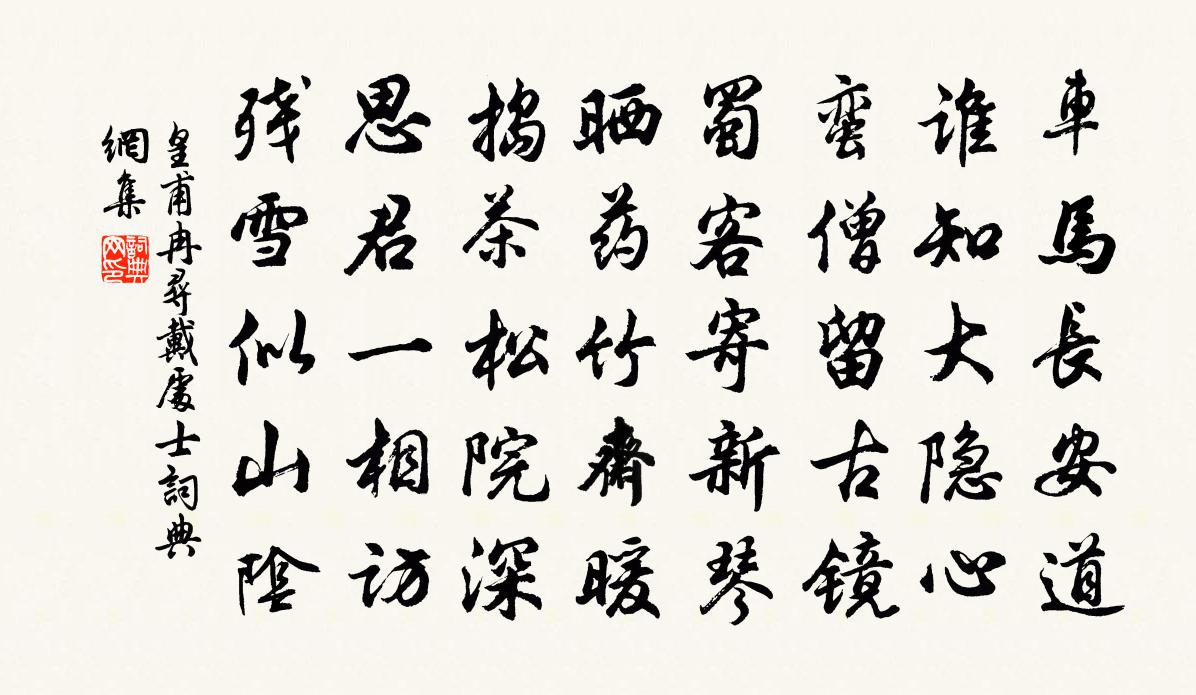 車馬長安道
誰知大隐心
蛮僧留古镜
蜀客寄新琴
晒药竹斋暖
搗茶松院深
思君一相訪
残雪似山陰
皇甫冉尋戴處士詞典
網集
詞典
网印